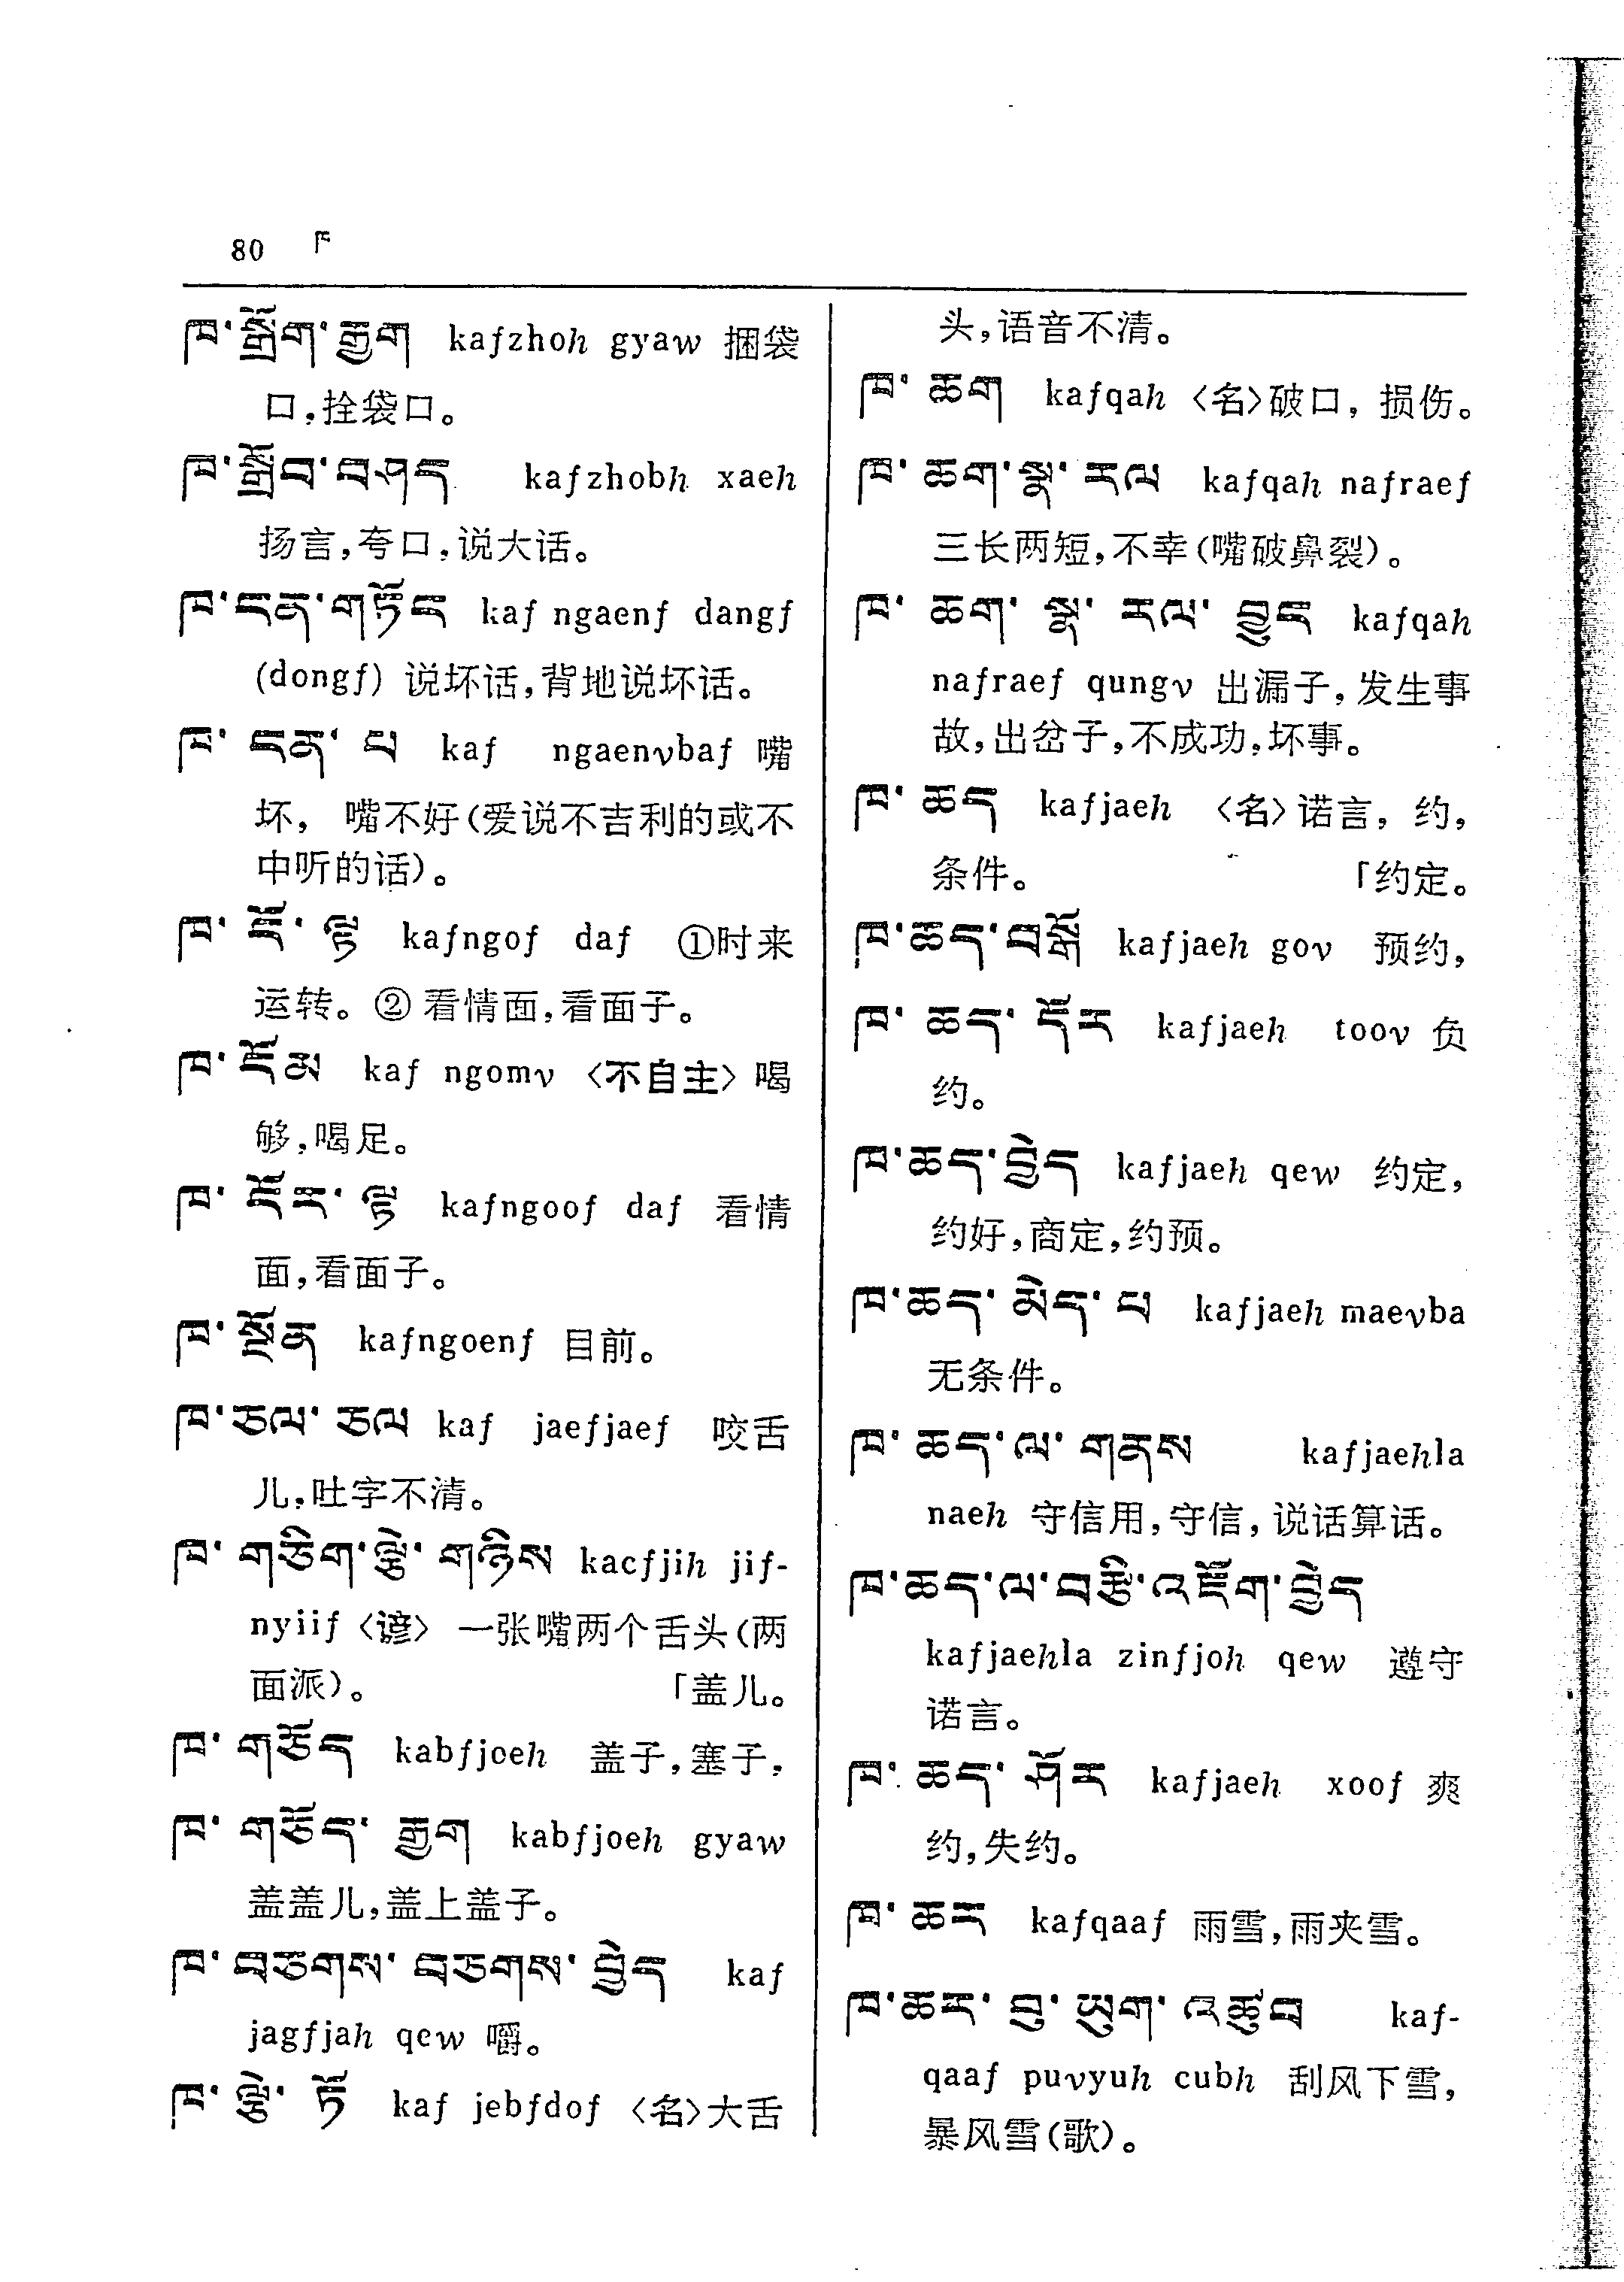 80 ཁ
ཁ་སྒྲོག་རྒྱག kafzhoh gyaw 捆袋
口,拴袋口。
ཁ་སྒྲོབ་བཤད kafzhobh xaeh
扬言,夸口,说大话。
ཁ་ངན་གཏོང kaf ngaenf dangf
(dongf) 说坏话,背地说坏话。
ཁ་ངན་པ kaf ngaenvbaf 嘴
坏, 嘴不好(爱说不吉利的或不
中听的话)。
ཁ་ངོ་ལྟ kafngof daf ①时来
运转。② 看情面,看面子。
ཁ་ངོམ kaf ngomv 〈不自主〉喝
够,喝足。
ཁ་ངོར་ལྟ kafngoof daf 看情
面,看面子。
ཁ་སྔོན kafngoenf 目前。
ཁ་ཅལ་ཅལ kaf jaefjaef 咬舌
儿,吐字不清。
ཁ་གཅིག་ལྕེ་གཉིས kacfjih jif-
nyiif 〈谚〉 一张嘴两个舌头(两
面派)。 「盖儿。
ཁ་གཅོད kabfjoeh 盖子,塞子,
ཁ་གཅོད་རྒྱག kabfjoeh gyaw
盖盖儿,盖上盖子。
ཁ་བཅགས་བཅགས་བྱེད kaf
jagfjah qew 嚼。
ཁ་ལྕེ་ཏོ kaf jebfdof 〈名〉大舌
头,语音不清。
ཁ་ཆག kafqah 〈名〉破口, 损伤。
ཁ་ཆག་སྣ་རལ kafqah nafraef
三长两短,不幸(嘴破鼻裂)。
ཁ་ཆག་སྣ་རལ་བྱུང kafqah
nafraef qungv 出漏子,发生事
故,出岔子,不成功,坏事。
ཁ་ཆད kafjaeh 〈名〉诺言, 约,
条件。 「约定。
ཁ་ཆད་བསྒོ kafjaeh gov 预约,
ཁ་ཆད་དོར kafjaeh toov 负
约。
ཁ་ཆད་བྱེད kafjaeh qew 约定,
约好,商定,约预。
ཁ་ཆད་མེད་པ kafjaeh maevba
无条件。
ཁ་ཆད་ལ་གནས kafjaehla
naeh 守信用,守信,说话算话。
ཁ་ཆད་ལ་བརྩི་འཇོག་བྱེད
kafjaehla zinfjoh qew 遵守
诺言。
ཁ་ཆད་ཤོར kafjaeh xoof 爽
约,失约。
ཁ་ཆར kafqaaf 雨雪,雨夹雪。
ཁ་ཆར་བུ་ཡུག་འཚུབ kaf-
qaaf puvyuh cubh 刮风下雪,
暴风雪(歌)。